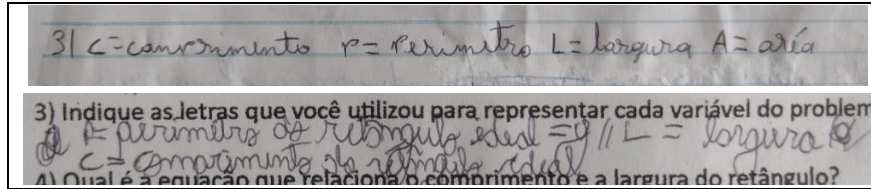 3| C = comprimento P = Perimetro L = largura A = aréa
3) Indique as letras que você utilizou para representar cada variável do problem
P = perimetro do retângulo ideal = 9 // L = largura
C = comprimento do retângulo ideal
4) Qual é a equação que relaciona o comprimento e a largura do retângulo?